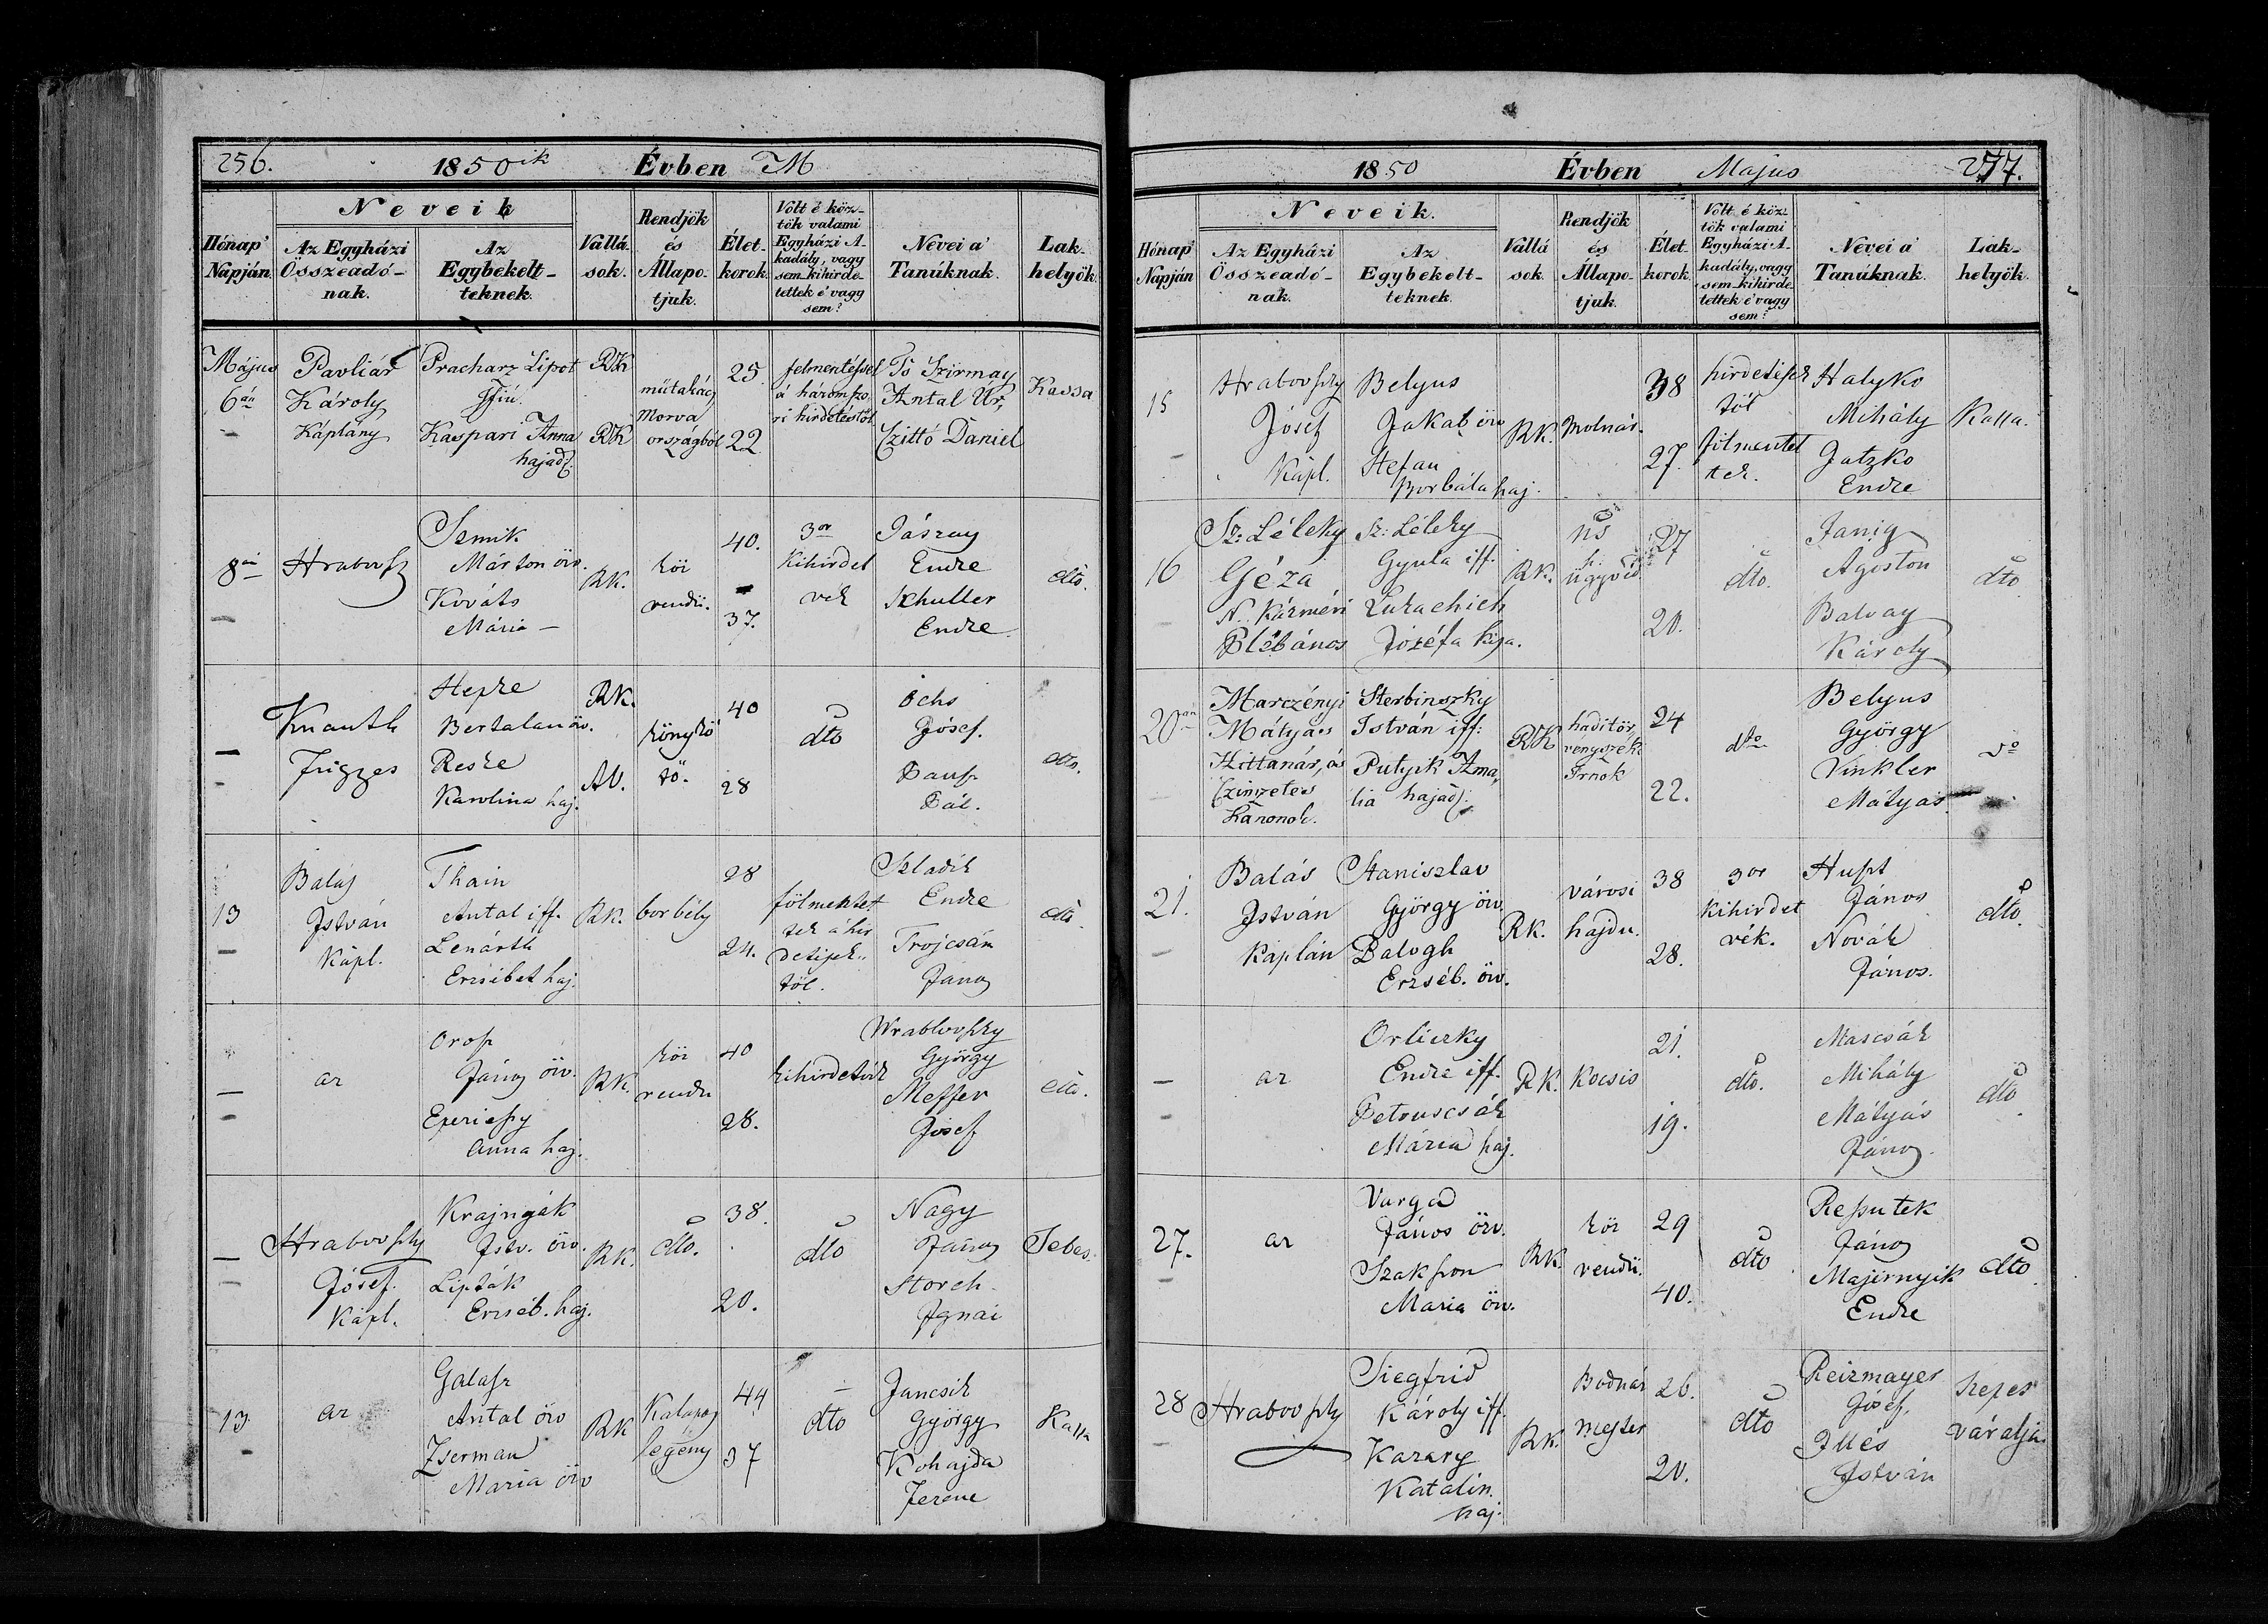 256.
1850ik Évben M
Neveik
Hónap' Napján.
Az Egyházi Összeadó-nak.
Az Egybekelt-teknek.
Vallá-sok.
Rendjök és Állapo-tjuk.
Élet-korok.
Volt é köz-tök valami Egyházi A-kadály, vagy sem kihirde-tettek é vagy sem?
Nevei a' Tanúknak.
Lak-helyök.
Május
6án
Pavliár
Károly
Káplány
Pracharz Lipot
Ifiú.
Kaspari Anna
hajad.
RK
RK
műtakács
Morva
országból
25
22
felmentéssel
á három szo
ri hirdetéstöl
Tó Szirmay
Antal Úr,
Czittó Daniel
Kassa
8án
Hrabovsz
Semik
Márton öv.
Kováts
Mária
RK.
köz
rendü.
40.
37.
3or
Kihirdet
vék
Jászay
Endre
Schuller
Endre
dto.
Knauth
Frigyes
Hepke
Bertalan öv.
Reske
Karolina haj.
RK.
AV.
könykö
tö.
40
28
dto
Ochs
Jósef.
Pausz
Pál.
dto.
13
Balás
István
Kápl.
Thain
Antal iff.
Lenárth
Erzsébet haj.
RK.
borbély
28
24.
fölmentet
tek á hir
detések
töl.
Szladik
Endre
Trojcsán
János
dto
az
Orosz
János öv.
Eperiessy
Anna haj.
RK.
köz
rendü
40
28.
kihirdetvék
Wrablovszky
György
Messer
Jósef
dto.
Hrabovszky
Jósef.
Kápl.
Krajnyák
Istv. öv.
Lipták
Erzséb. haj.
RK.
dto.
38.
20.
dto
Nagy
János
Storch
Ignác
Sebes.
13
az
Galasz
Antal öv
Zserman
Maria öv
RK
Kalapos
legény
44
37
dto
Jancsik
György
Kohajda
Ferenc
Kassa
1850 Évben Majus
257.
Neveik.
Hónap' Napján
Az Egyházi Összeadó-nak.
Az Egybekelt-teknek.
Vallá sok.
Rendjök és Állapo-tjuk.
Élet-korok.
Volt é köz-tök valami Egyházi A-kadály, vagy sem kihirde-tettek é vagy sem?
Nevei a' Tanúknak.
Lak-helyök.
15
Hrabovszky
Jósef
Kápl.
Belyus
Jakab öv
Stefan
Borbála haj.
RK.
Molnár.
38
27.
hirdetések
töl
fölmentet
tek.
Halyko
Mihály
Jatzko
Endre
Kassa.
16
Sz: Léleky
Géza
N. Kázméri
Plébános
Sz: Léleky
Gyula iff.
Lukachich
Józéfa kisa.
RK.
ns
h.
ügyvéd
27
20.
dto.
Janig
Agoston
Balvay
Károly
dto
20án
Marczényi
Mátyás
Hittanár, és
Czimzetes
Kanonok.
Sterbinszky
István iff:
Putyik Ama,
lia hajad.
RK
haditör,
vényszéki
Írnok
24
22.
dto
Belyus
György
Vinkler
Mátyás.
do
21.
Balás
István
Káplán
Staniszlav
György öv.
Balogh
Erzséb. öv.
RK.
városi
hajdu.
38
28.
3or
kihirdet
vék.
Hupt
János
Novák
János.
dto.
az
Orliczky
Endre iff.
Petruscsák
Mária haj.
RK.
Kocsis
21.
19.
dto.
Mascsák
Mihály
Mátyás
János.
dto
27.
az
Varga
János öv.
Szakszon
Maria öv.
RK.
köz
rendü.
29
40.
dto
Reputek
János
Majernyik
Endre
dto.
28
Hrabovszky
Siegfrid
Károly iff.
Kazary
Katalin.
haj.
RK.
Bodnár
mester
26.
20.
dto
Reizmayer
Jósef,
Illés
István
Szepes
váralja.